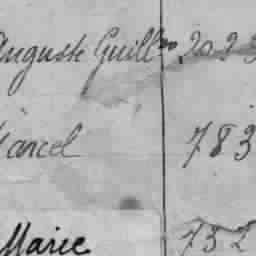 Auguste Guill^mo 2023
Marcel 783
Marie 732